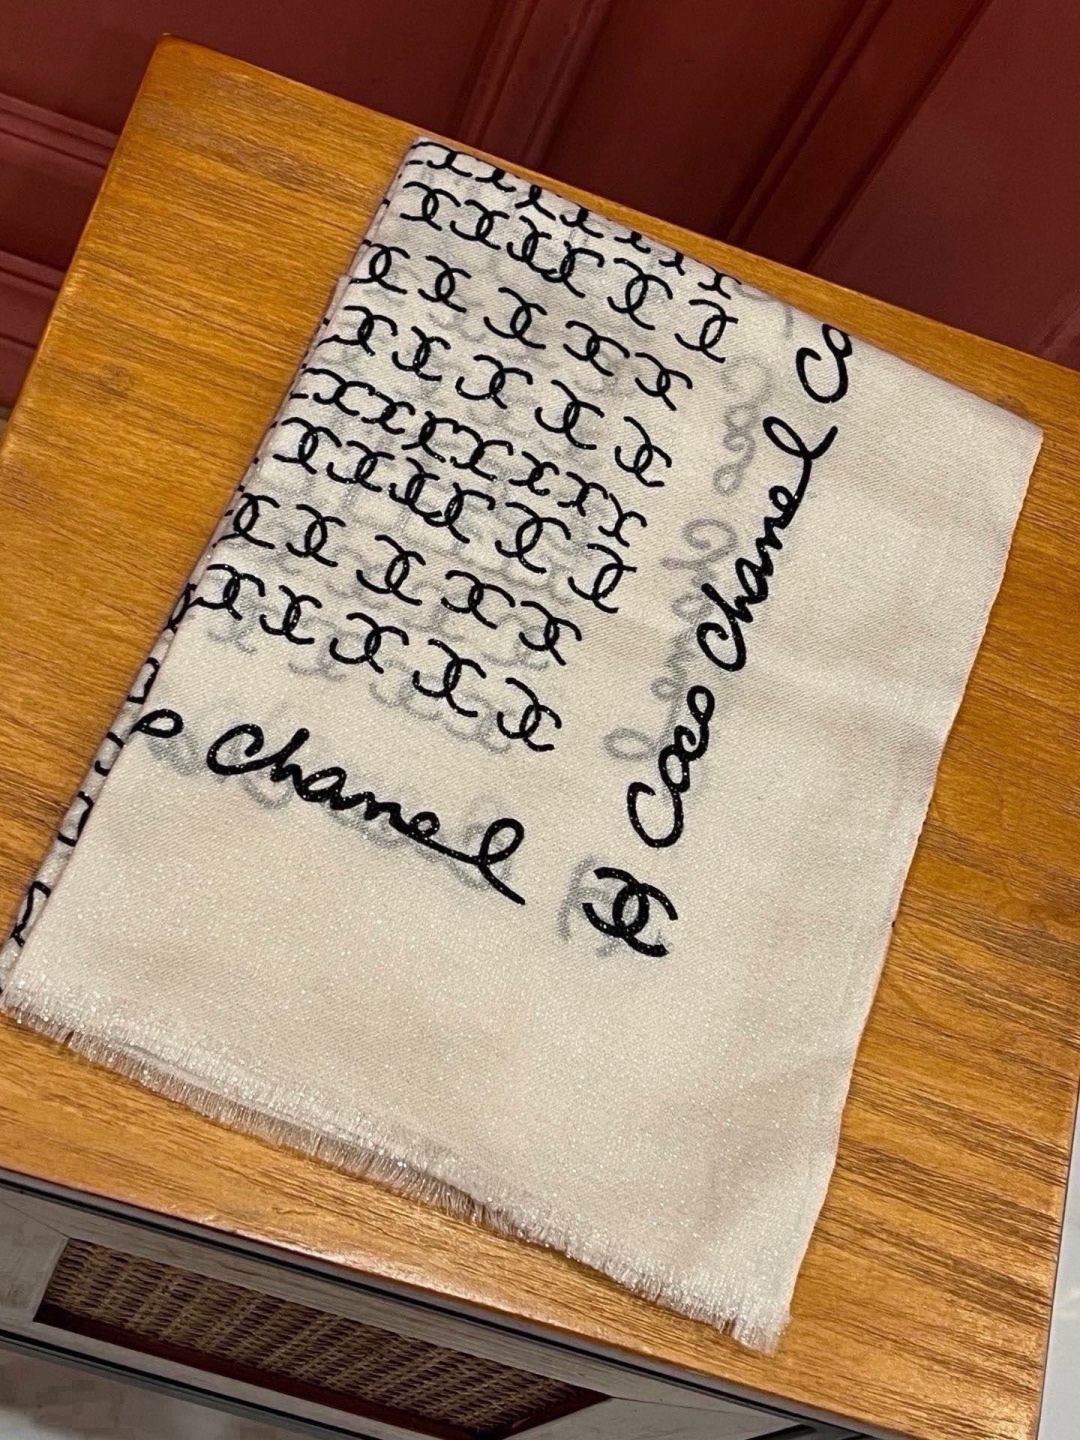 coco chanel co
o chanel